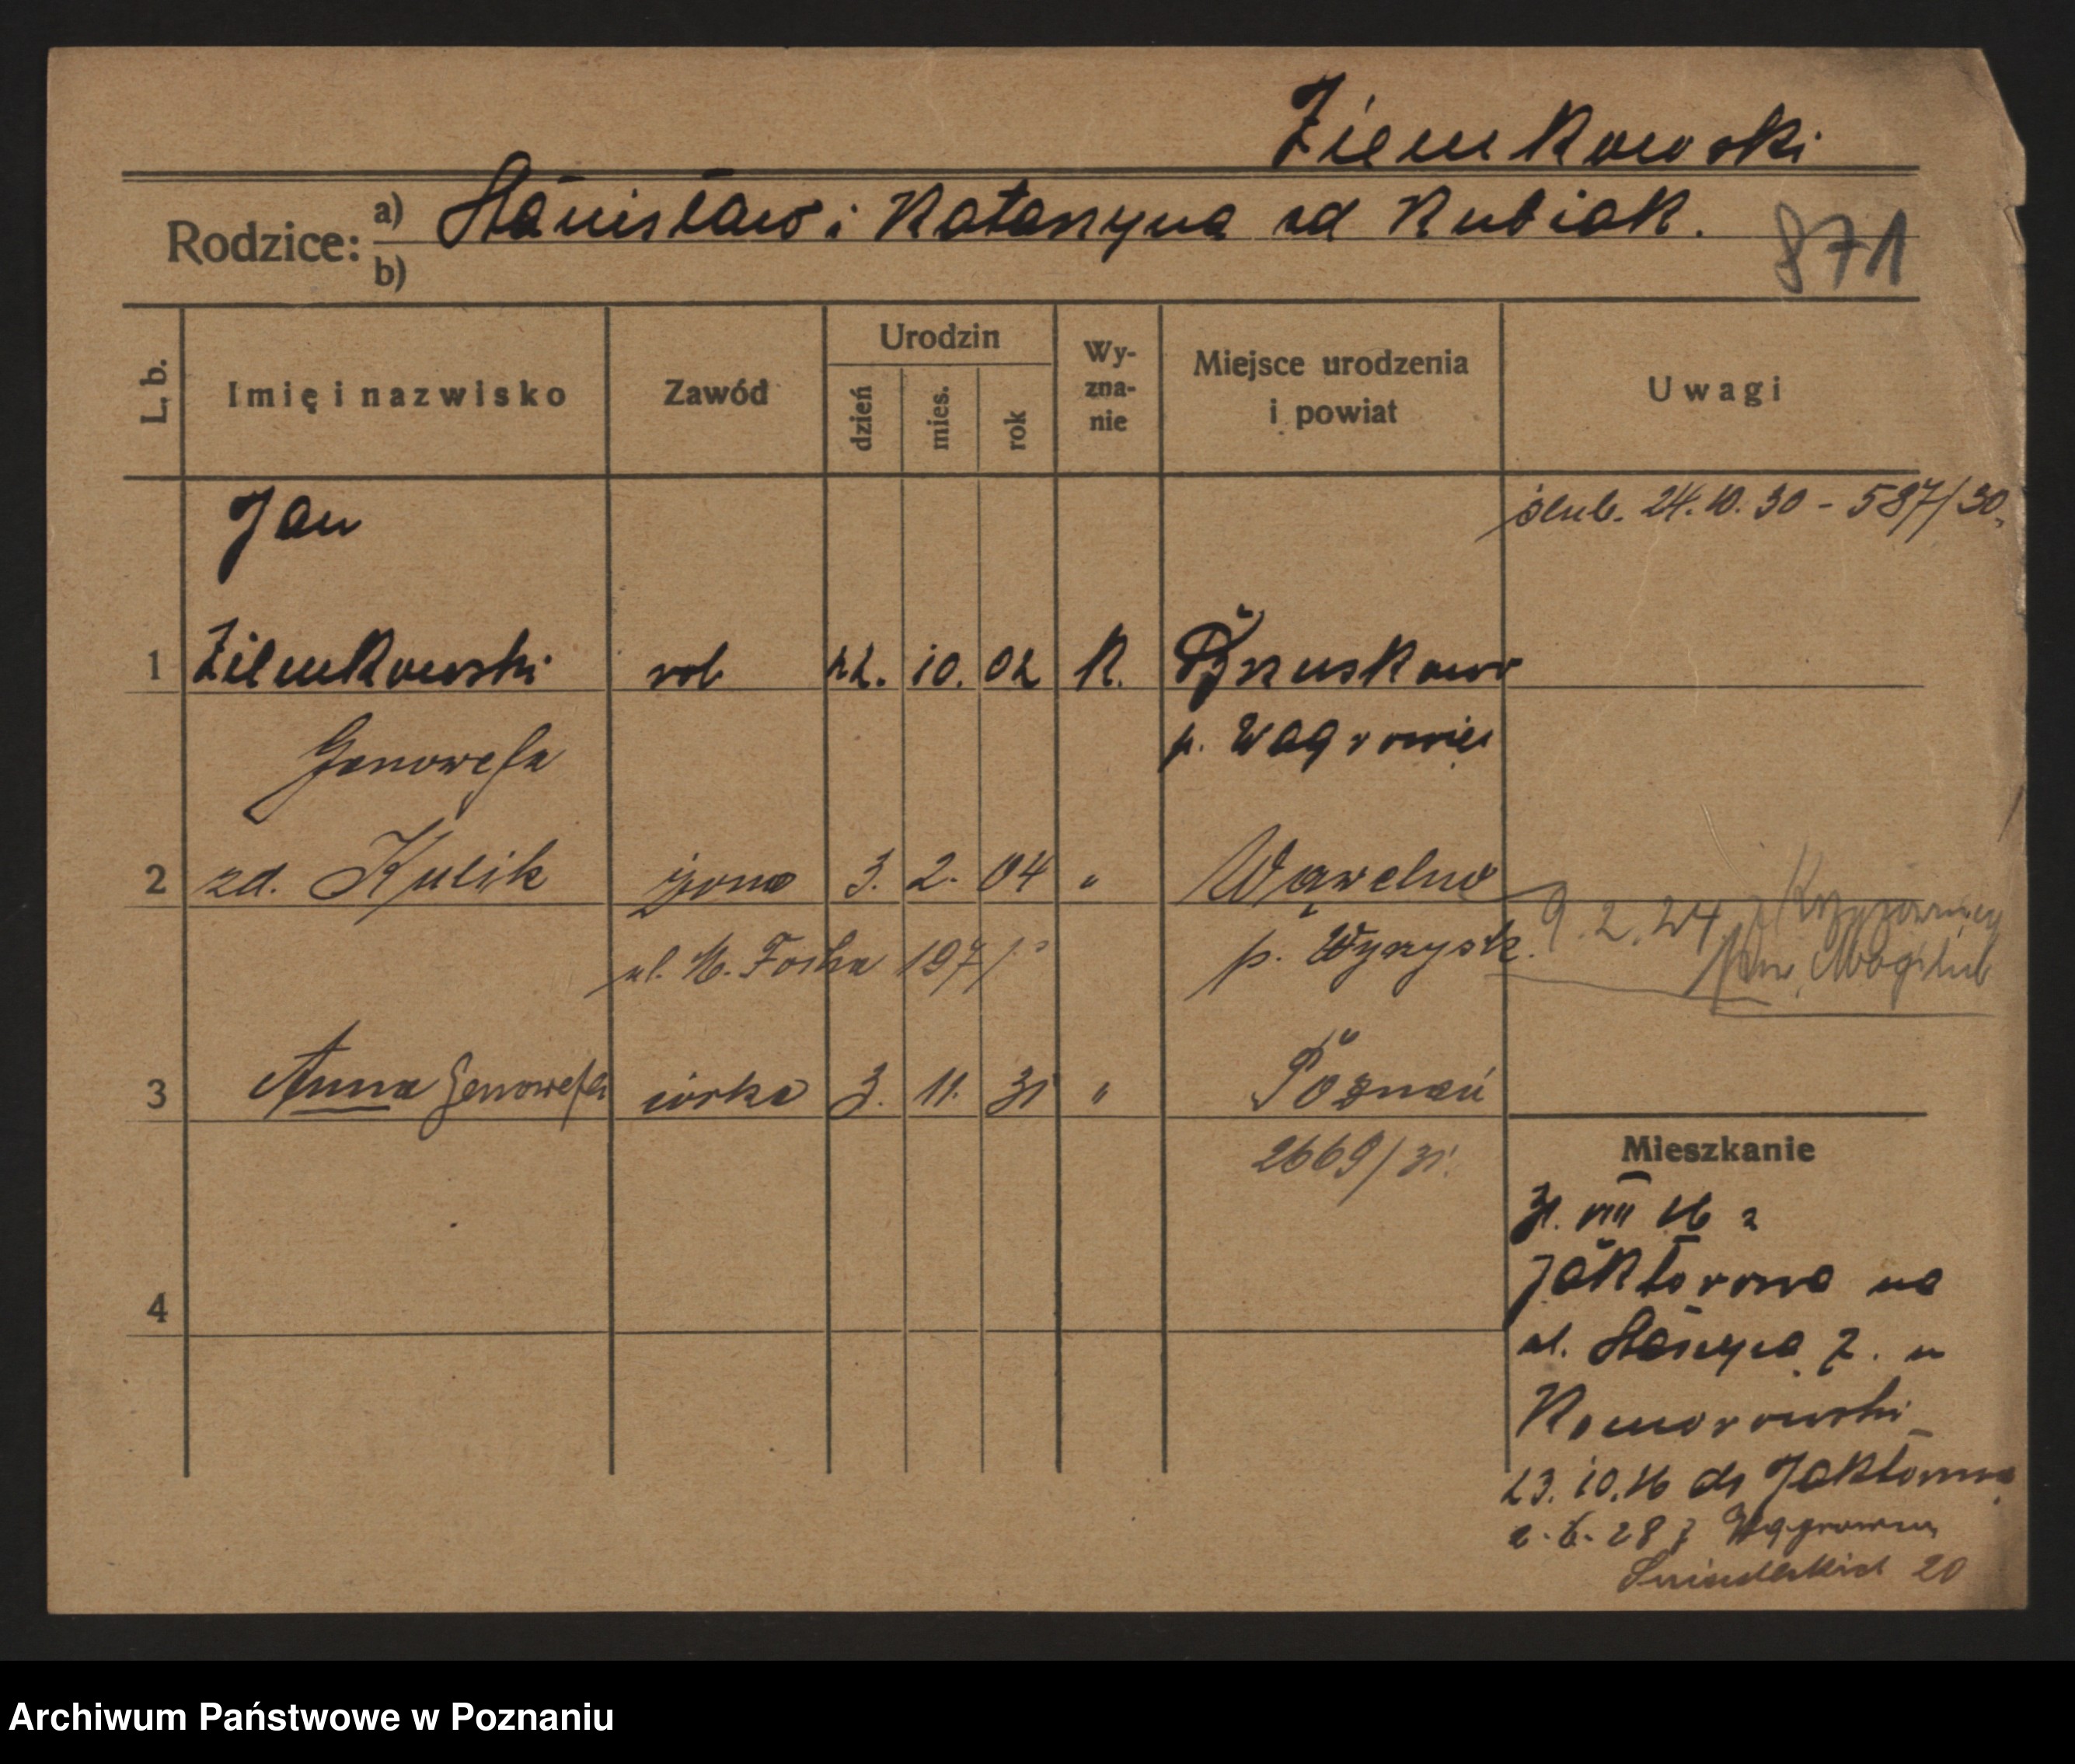 Ziemkowski
Rodzice: a) Stanisław i Katarzyna zd Kubiak.
b)
871
L. b.
Imię i nazwisko
Zawód
Urodzin
dzień
mies.
rok
Wy-
zna-
nie
Miejsce urodzenia
i powiat
Uwagi
Jan
ślub. 24.10.30 - 587/30.
1 Ziemkowski rob 22. 10. 02 K. Pruskowo
p. Wagrowiec
Genowefa
2 zd. Kulik żona 3. 2. 04 " Wąwelno
ul. M. Focha 197/ p. Wyrzysk.
9.2.24 z
pow. Mogilno
3 Anna Genowefa córka 3. 11. 31 " Poznań
2669/31.
Mieszkanie
4
31. VIII 26 z
Jaktorowa na
ul. Staszyca 7. u
Komorowski
23.10.26 do Jaktorowa
2.6.28 z Wągrowca
Śniadeckich 20
Archiwum Państwowe w Poznaniu